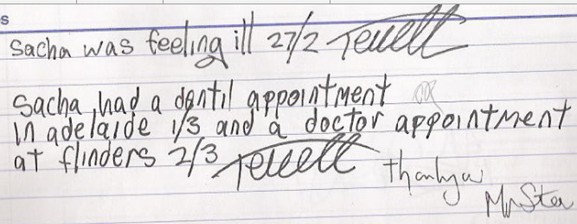 s
Sacha was feeling ill 27/2
Sacha had a dentil appointment
in adelaide 1/3 and a doctor appointment
at flinders 2/3
thankyou